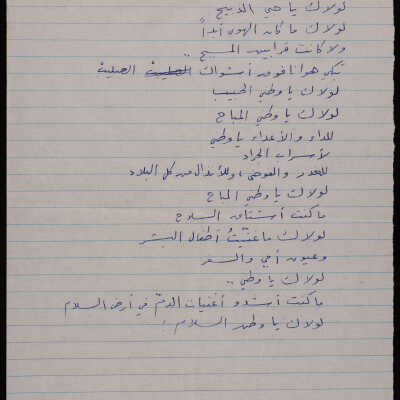 لولاك يا حي الذبيح
لولاك ما كان الهوى أبداً
ولا كانت قرابين المسيح ..
تبكي هوانا فوق أشواك الصليب
لولاك يا وطني الحبيب
لولاك يا وطني المباح
للداء والأعداء يا وطني
لأسراب الجراد
للغدر والفوضى، وللأنذال من كل البلاد
لولاك يا وطني المباح
ما كنت أشتاق السلاح
لولاك ما غنّيتُ أطفال البشر
وعيون أمي والسفر
لولاك يا وطني ..
ما كنت أشدو أغنيات الدم في أرض السلام
لولاك يا وطن السلام !